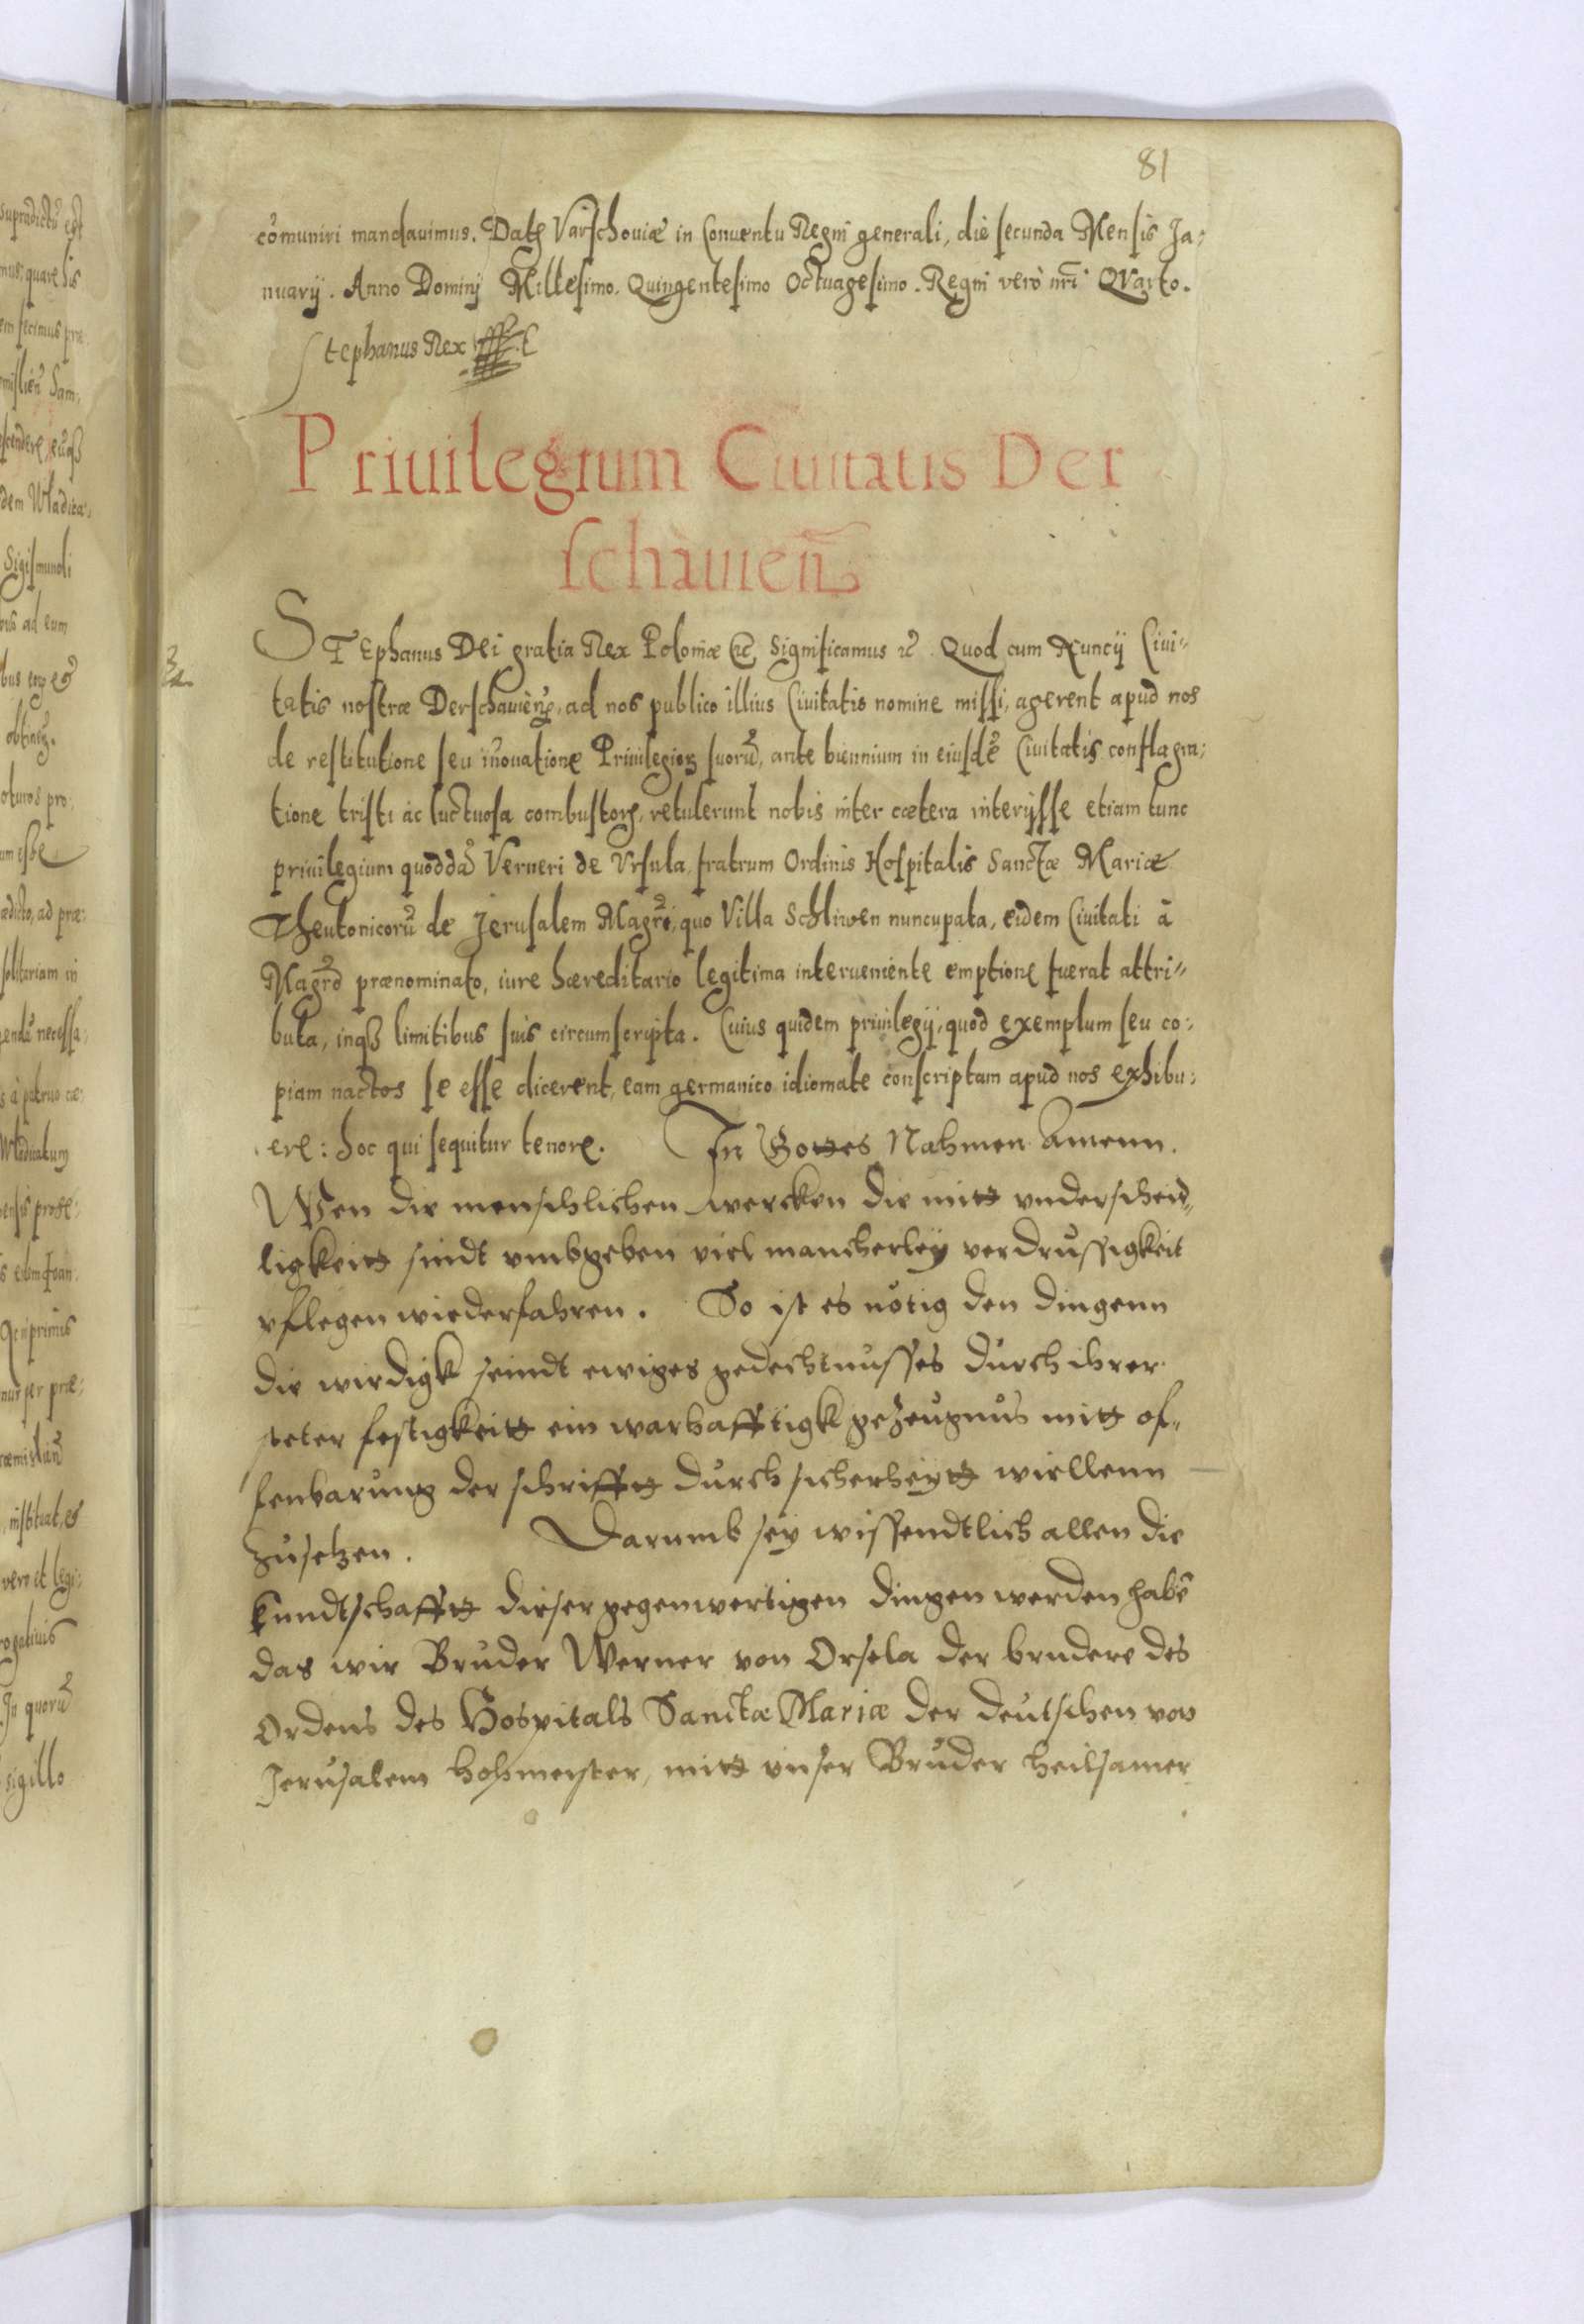 81
cõmuniri mandauimus. Datꝫ Varschouiæ in Conuentu Regni generali, die secunda Mensis Ja:
nuarij. Anno Dominj Millesimo. Quingentesimo Octuagesimo. Regni verò nr̃i QVarto.
Stephanus Rex
Priuilegium Ciuitatis Der
schàuien̄
STEphanus DEi gratia Rex Poloniæ ꝛc̃ Significamus ꝛc̃. Quod cum Nuncij Ciui-
tatis nostræ Derschauien̄, ad nos publico illius Ciuitatis nomine missi, agerent apud nos
de restitutione seu iñouatione Priuilegioꝝ suorũ, ante biennium in eiusdẽ Ciuitatis conflagra:
tione tristi ac luctuosa combustoꝝ, retulerunt nobis inter cætera interijsse etiam tunc
priuilegium quoddã Verneri de Vrsula fratrum Ordinis Hospitalis Sanctæ Mariæ
Theutonicorũ de Jerusalem Magr̃i, quo Villa Schliwen nuncupata, eidem Ciuitati à
Magr̃o prænominato, iure hæreditario legitima interueniente emptione fuerat attri-
buta, inqꝫ limitibus suis circumscripta. Cuius quidem priuilegij, quod exemplum seu co:
piam nactos se esse dicerent, eam germanico idiomate conscriptam apud nos exhibu:
ere: hoc qui sequitur tenore. In Gottes Nahmen Amenn.
Wen die menschlichen wercken die mitt vnderscheid-
ligkeitt sindt vmbgeben viel mancherleÿ verdrussigkeit
pflegen wiederfahren. So ist es nötig den dingenn
die wirdigk seindt ewiges gedechtnusses durch ihrer
steter festigkeitt ein warhafftigk gezeugnus mitt of-
fenbarung der schrifftt durch sicherheÿtt wiellenn
zusetzen. Darumb seÿ wissendtlich allen die
kundtschafftt dieser gegenwertigen dingen werden habẽ
das wir Bruder Werner von Orsela der brudere des
Ordens des Hospitals Sanctæ Mariæ der deutschen von
Jerusalem hohmeyster, mitt vnser Bruder heilsamer